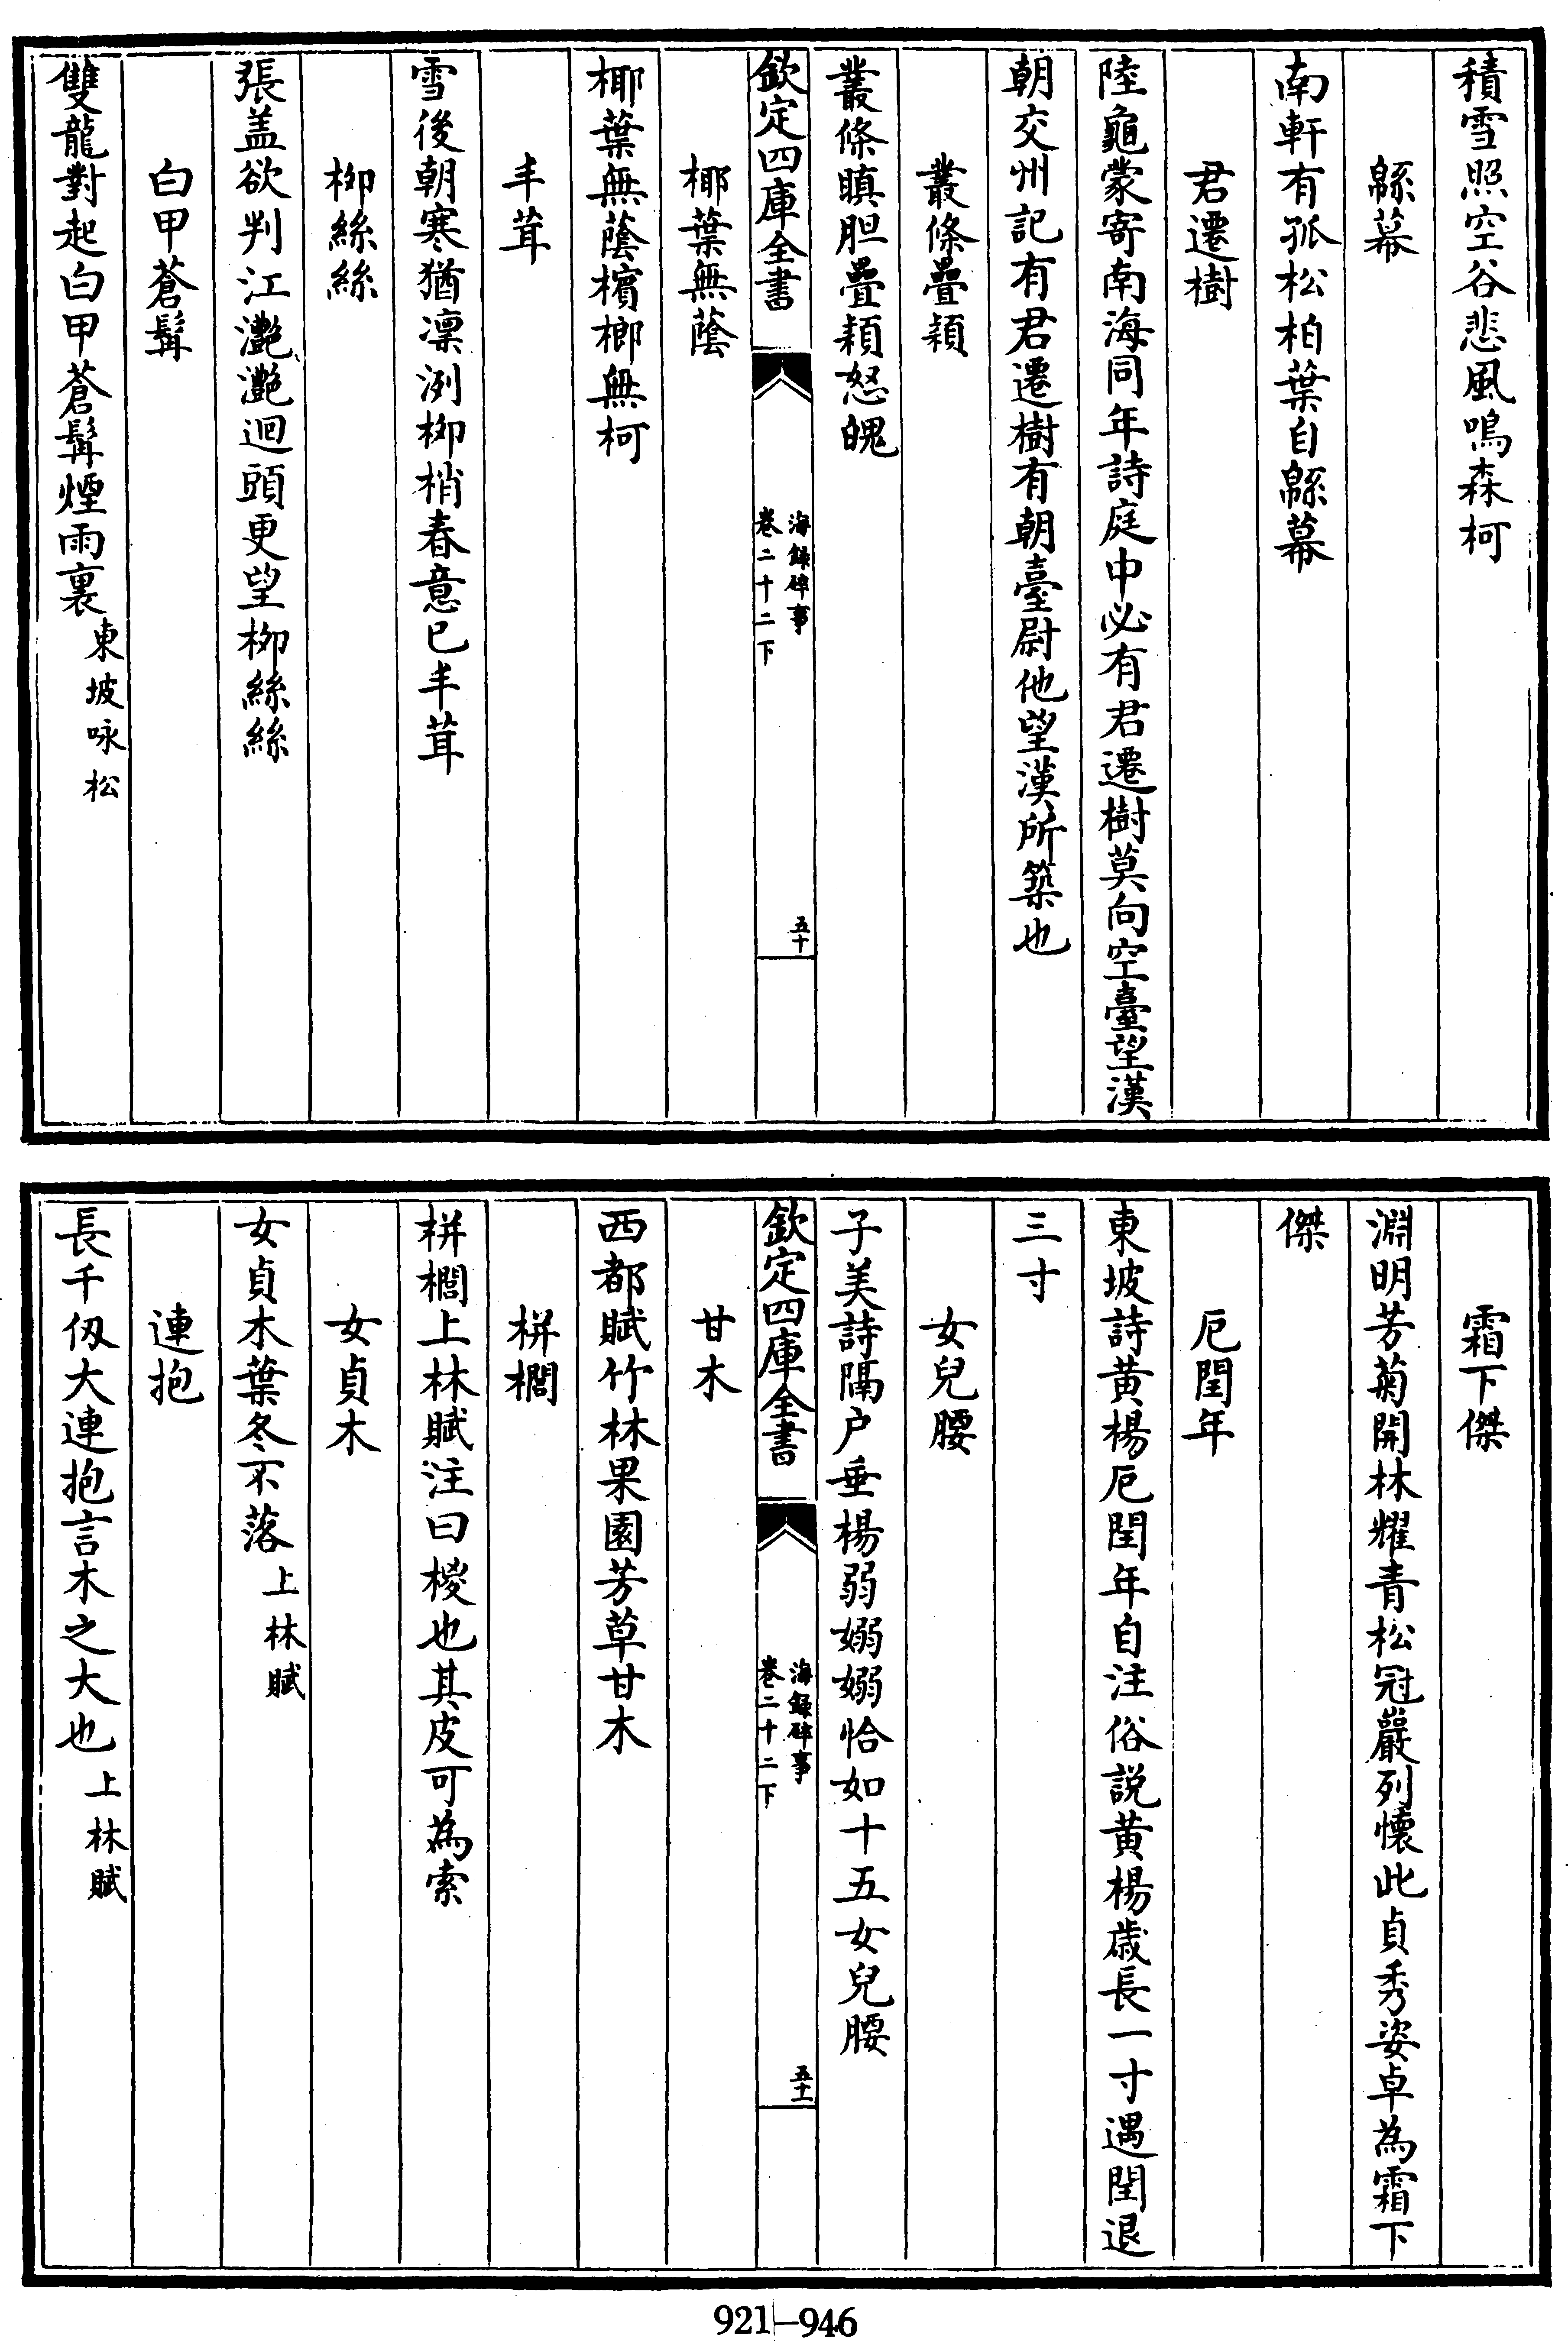 積雪照空谷悲風鳴森柯
緜幕
南軒有孤松柏葉自緜幕
君遷樹
陸龜蒙寄南海同年詩庭中必有君遷樹莫向空臺望漢
朝交州記有君遷樹有朝臺尉他望漢所築也
叢條疊穎
叢條瞋胆疊穎怒魄
欽定四庫全書
海錄碎事
卷二十二下
五十
椰葉無蔭
椰葉無蔭檳榔無柯
丰茸
雪後朝寒猶凜洌柳梢春意已丰茸
柳絲絲
張盖欲判江灩灩迴頭更望柳絲絲
白甲蒼髯
雙龍對起白甲蒼髯煙雨裏東坡咏松
霜下傑
淵明芳菊開林耀青松冠巖列懷此貞秀姿卓為霜下
傑
厄閏年
東坡詩黃楊厄閏年自注俗説黃楊歳長一寸遇閏退
三寸
女兒腰
子美詩隔户垂楊弱嫋嫋恰如十五女兒腰
欽定四庫全書
海錄碎事
卷二十二下
五十一
甘木
西都賦竹林果園芳草甘木
栟櫚
栟櫚上林賦注曰椶也其皮可為索
女貞木
女貞木葉冬不落上林賦
連抱
長千仭大連抱言木之大也上林賦
921-946